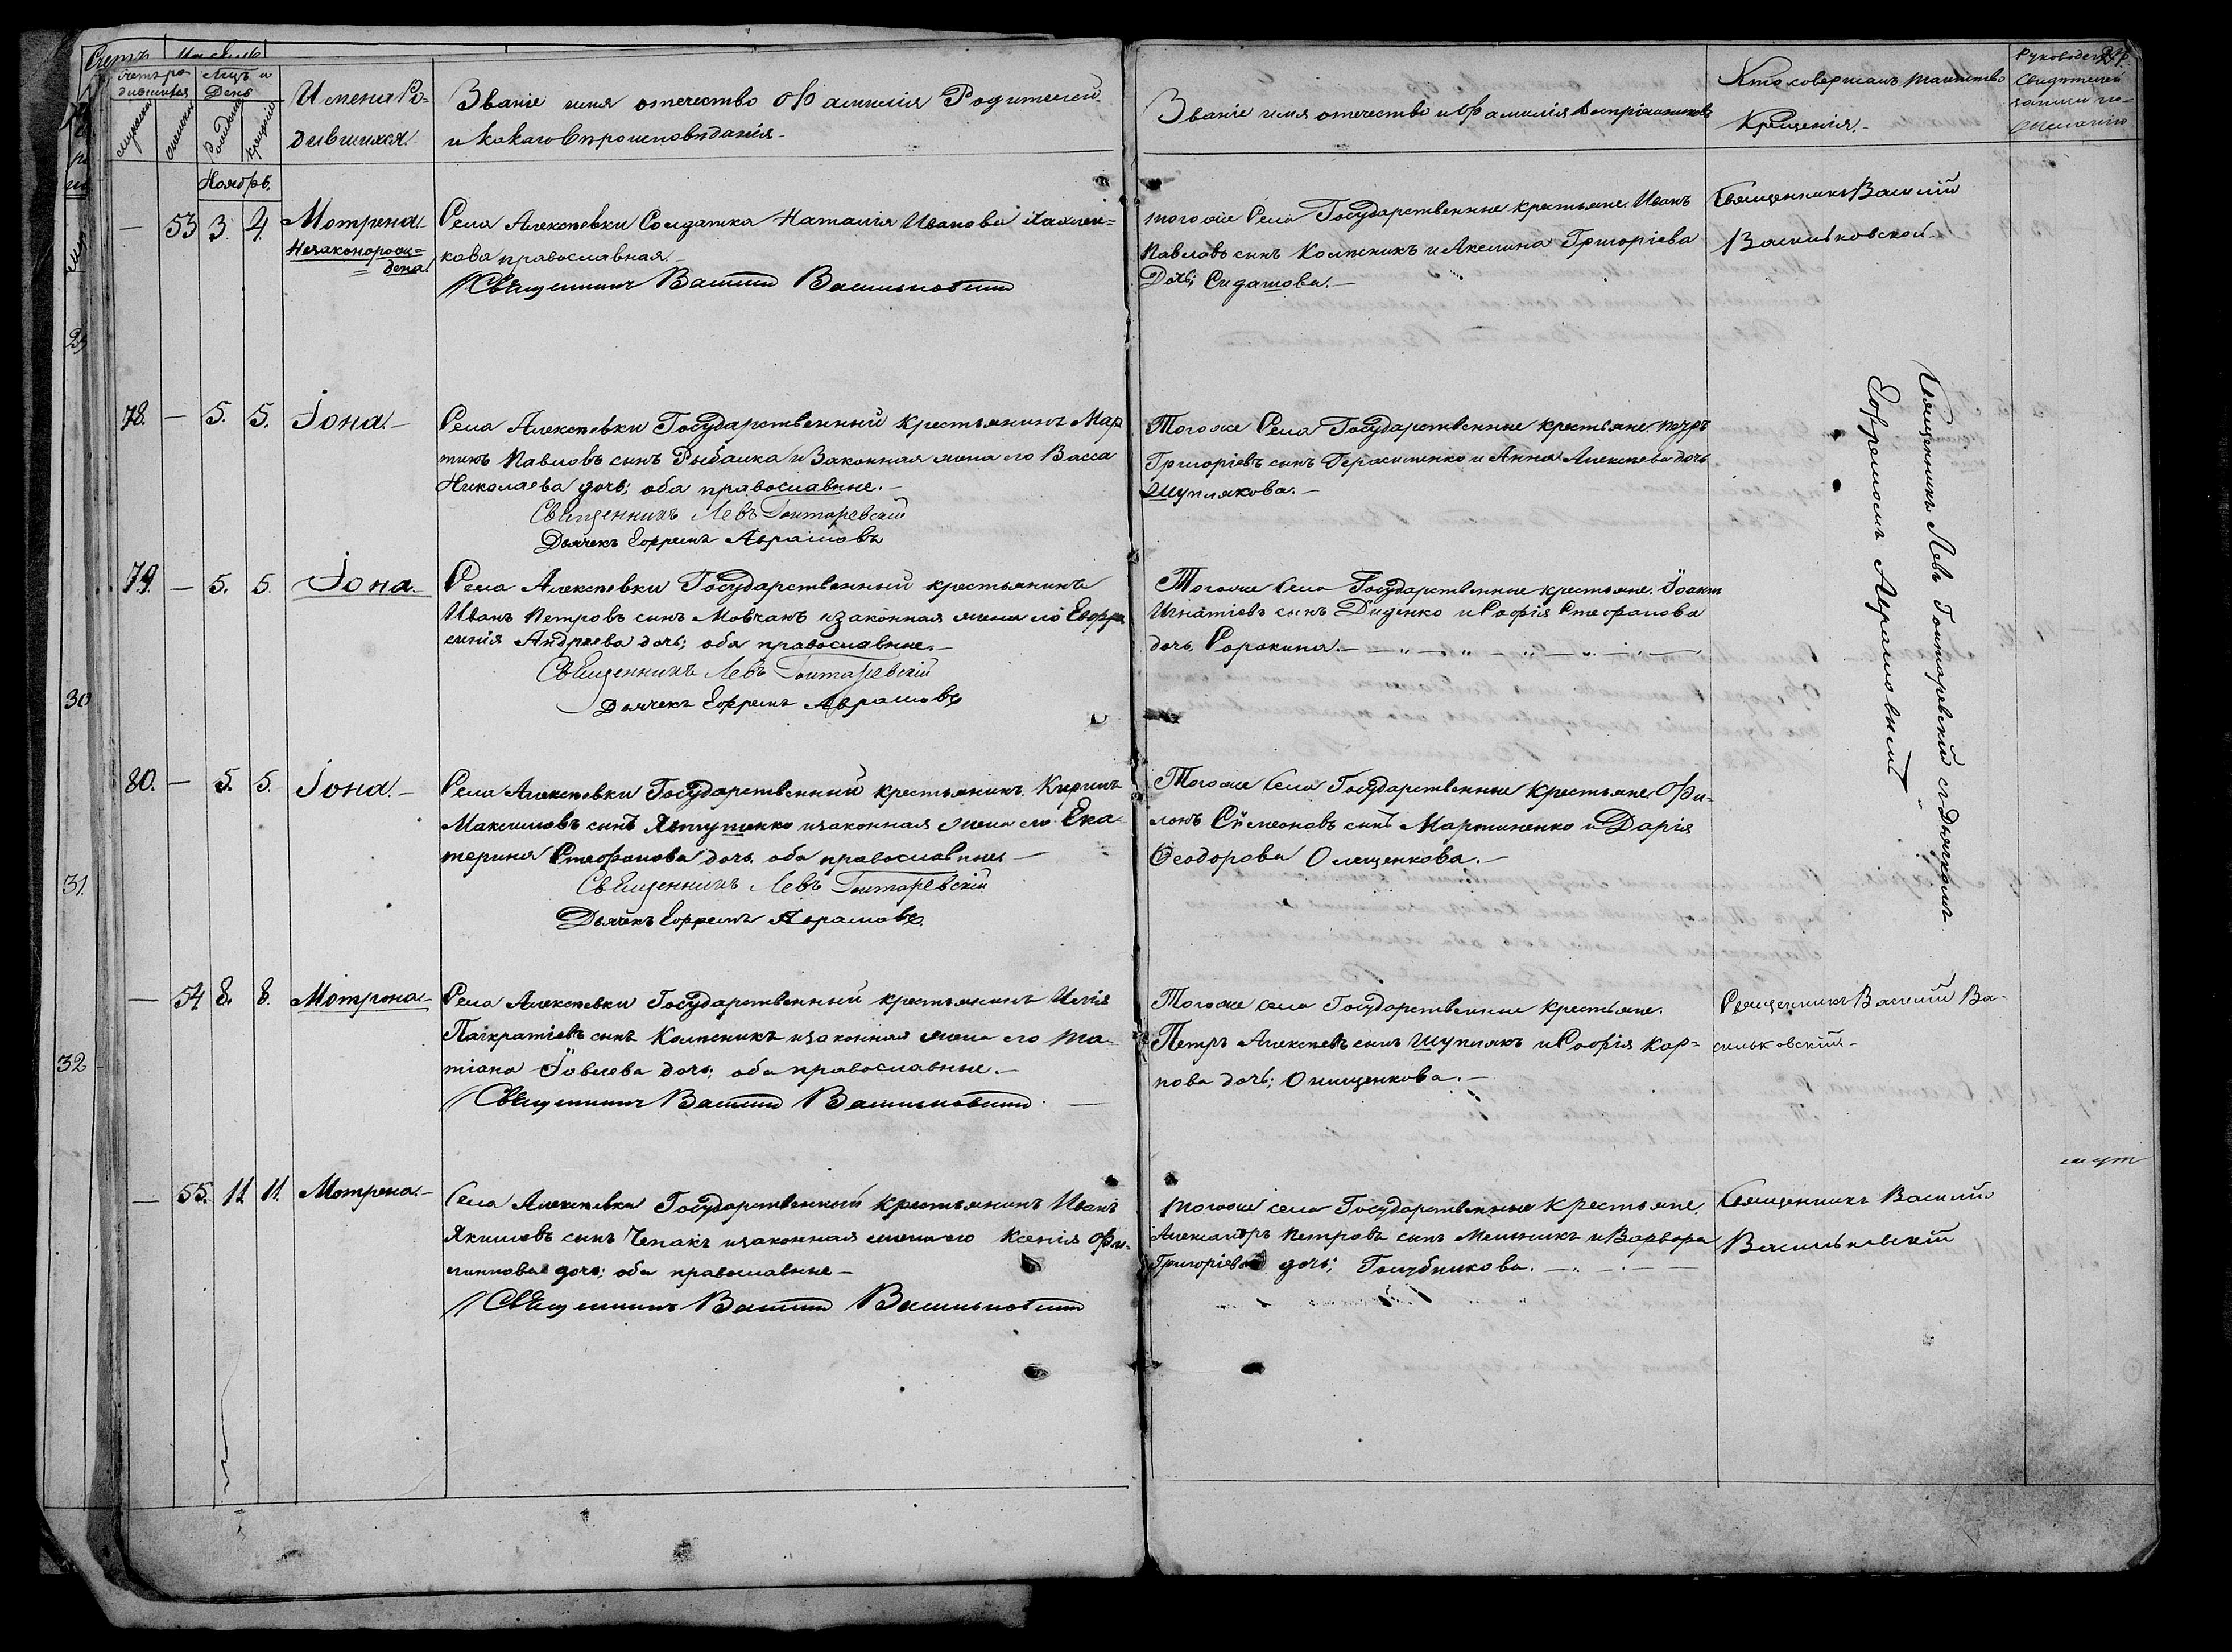 Счетъ ро-
дившихся
Мѣцъ и
День
Имена Ро-
дившихся.
Званіе имя отечество фамилія Родителей
и какого вѣроисповѣданія.
Званіе имя отечество и фамилія воспріемниковъ
Кто совершалъ таинство
Крещенія.
Свидѣтелей
Рожденія
Крещенія
Ноябрь.
— 53 3. 4. Мотрена.
Незаконорож-
дена.
Села Алексѣевки Солдатка Наталія Иванова
кова православная.
Священникъ Василій Васильковскій
того же Села Государственные крестьяне Иванъ
Павловъ сынъ Колѣсникъ и Акелина Григоріева
Дочь; Сидашова.
Священникъ Василій
Васильковской.
78. — 5. 5. Іона.
Села Алексѣевки Государственный крестьянинъ Мар
тинъ Павловъ сынъ Рыбалка и Законная жена его Васса
Николаева дочь; оба православные.
Священникъ Левъ Гонторевскій
Дьячекъ Ефремъ Аврамовъ
Того же Села Государственные крестьяне
Григоріевъ сынъ Герасименко и Анна Алексѣева дочь
Шуплякова.
79. — 5. 5. Іона.
Села Алексѣевки Государственный крестьянинъ
Иванъ Петровъ сынъ Мовчанъ и законная жена его Евфро
синія Андреева дочь; оба православные.
Священникъ Левъ Гонторевскій
Дьячекъ Ефремъ Аврамовъ
Того же Села Государственные крестьяне. Іоанн
Игнатіевъ сынъ Диденко и Софія Стефанова
дочь. Сорокина.
80. — 5. 5. Іона.
Села Алексѣевки Государственный крестьянинъ Кирилъ
Максимовъ сынъ Явтушенко и законная жена его Ека-
терина Стефанова дочь оба православные
Священникъ Левъ Гонторевскій
Дьячекъ Ефремъ Аврамовъ.
Того же Села Государственные Крестьяне Фи-
лонъ Симеоновъ сынъ Мартиненко и Дарія
Ѳеодорова Олещенкова.
Священникъ Левъ Гонторевскій съ дьячкомъ
Ефремомъ Аврамовымъ
— 54 8. 8. Мотрона.
Села Алексѣевки Государственный крестьянинъ Илія
Панкратіевъ сынъ Колѣсникъ и законная жена его Та-
тіана Іовлева дочь; оба православные.
Священникъ Василій Васильковскій
Того же села Государственные крестьяне.
Петръ Алексѣевъ сынъ Шуплякъ и Софія Кар-
пова дочь; Онищенкова.
Священникъ Василій Ва-
сильковскій
— 55. 11. 11. Мотрена.
Села Алексѣевки Государственный крестьянинъ Иванъ
Якимовъ сынъ Чепакъ и законная жена его Ксенія Фи-
липповая дочь; оба православные
Священникъ Василій Васильковскій
того же села Государственные Крестьяне.
Александръ Петровъ сынъ Мельникъ и Варвара
Григоріева дочь; Голубникова.
Священникъ Василій
Васильковскій
30
31.
32